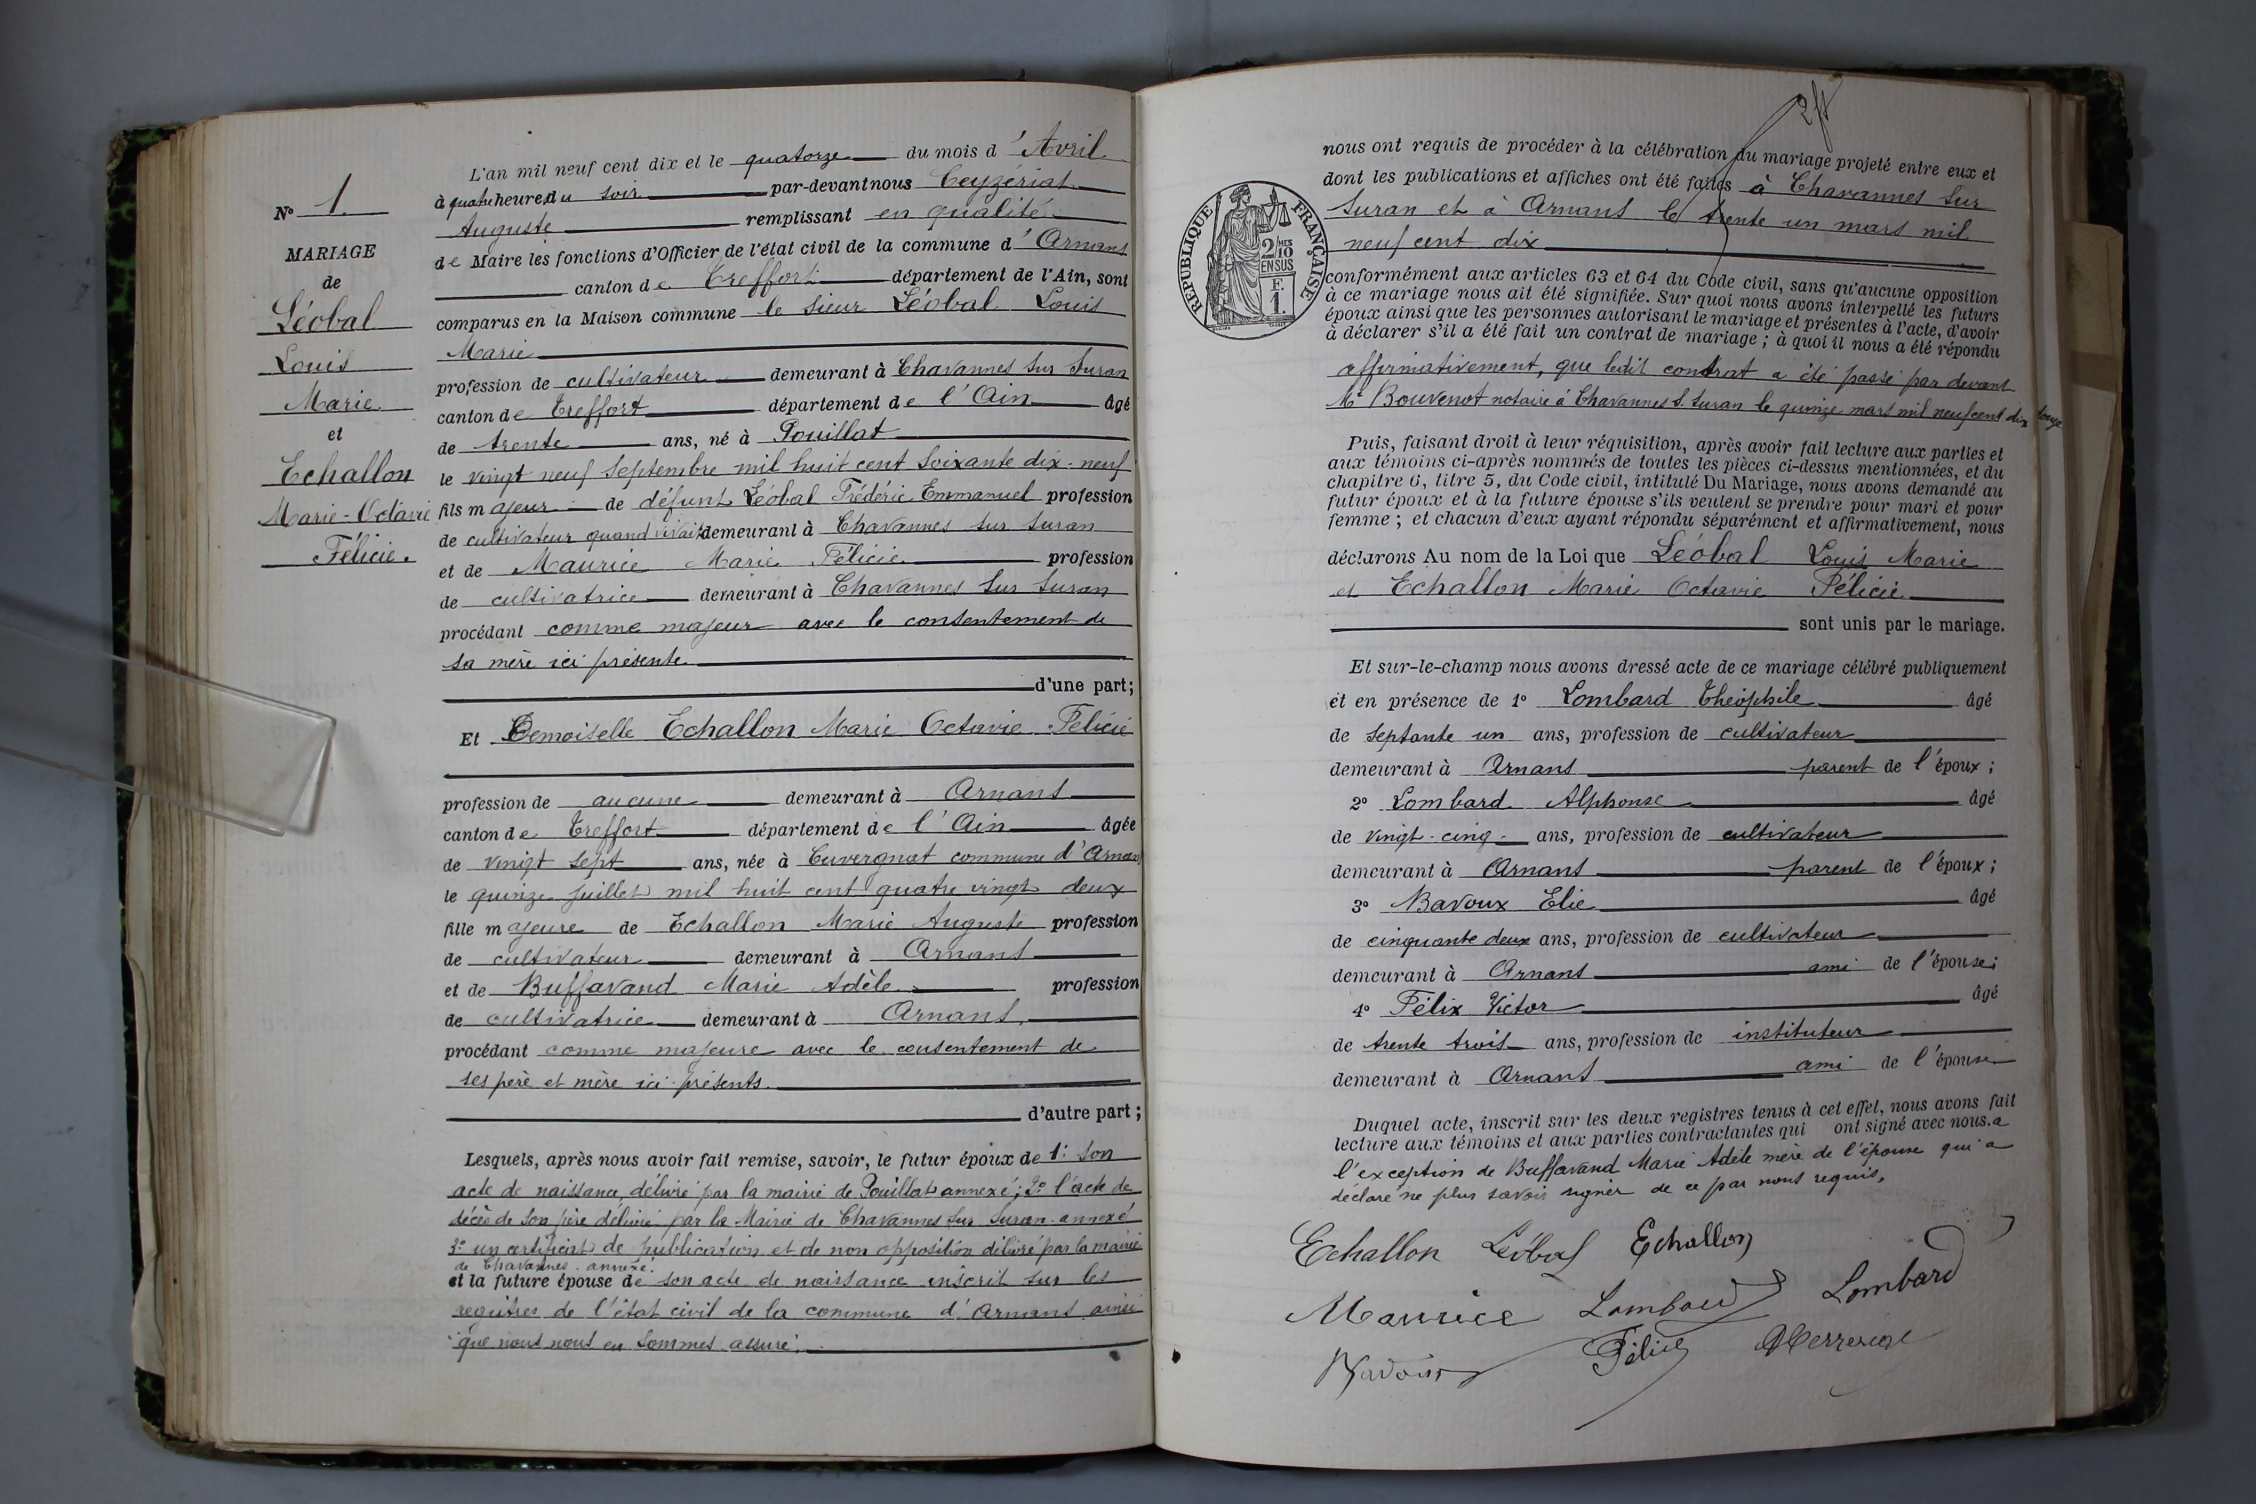 N° 1.
MARIAGE
de
Léobal
Louis
Marie
et
Echallon
Marie-Octavie
Félicie.
L'an mil neuf cent dix et le quatorze du mois d'Avril
à quatre heures du soir par-devant nous Ceyzériat
Auguste remplissant en qualité
de Maire les fonctions d'Officier de l'état civil de la commune d'Arnans
canton de Treffort département de l'Ain, sont
comparus en la Maison commune le sieur Léobal Louis
Marie
profession de cultivateur demeurant à Chavannes sur Suran
canton de Treffort département de l'Ain âgé
de trente ans, né à Pouillat
le vingt neuf Septembre mil huit cent soixante dix-neuf
fils majeur de défunt Léobal Frédéric Emmanuel profession
de cultivateur quand vivait demeurant à Chavannes sur Suran
et de Maurice Marie Félicie profession
de cultivatrice demeurant à Chavannes sur Suran
procédant comme majeur avec le consentement de
sa mère ici présente
d'une part;
Et Demoiselle Echallon Marie Octavie Félicie
profession de aucune demeurant à Arnans
canton de Treffort département de l'Ain âgée
de vingt sept ans, née à Cuvergnat commune d'Arnans
le quinze juillet mil huit cent quatre vingt deux
fille majeure de Echallon Marie Auguste profession
de cultivateur demeurant à Arnans
et de Buffavand Marie Adèle profession
de cultivatrice demeurant à Arnans.
procédant comme majeure avec le consentement de
ses père et mère ici présents.
d'autre part;
Lesquels, après nous avoir fait remise, savoir, le futur époux de 1° son
acte de naissance, délivré par la mairie de Pouillat annexé; 2° l'acte de
décès de son père délivré par la Mairie de Chavannes sur Suran annexé
3° un certificat de publication et de non opposition délivré par la mairie
de Chavannes. annexé.
et la future épouse de son acte de naissance inscrit sur les
registres de l'état civil de la commune d'Arnans ainsi
que nous nous en sommes assuré.
nous ont requis de procéder à la célébration du mariage projeté entre eux et
dont les publications et affiches ont été faites à Chavannes sur
Suran et à Arnans le trente un mars mil
neuf cent dix
RÉPUBLIQUE FRANÇAISE
2/10 MES
EN SUS
F.
1.
conformément aux articles 63 et 64 du Code civil, sans qu'aucune opposition
à ce mariage nous ait été signifiée. Sur quoi nous avons interpellé les futurs
époux ainsi que les personnes autorisant le mariage et présentes à l'acte, d'avoir
à déclarer s'il a été fait un contrat de mariage; à quoi il nous a été répondu
affirmativement, que ledit contrat a été passé par devant
Me Bouvenot notaire à Chavannes s. Suran le quinze mars mil neuf cent dix
Puis, faisant droit à leur réquisition, après avoir fait lecture aux parties et
aux témoins ci-après nommés de toutes les pièces ci-dessus mentionnées, et du
chapitre 6, titre 5, du Code civil, intitulé Du Mariage, nous avons demandé au
futur époux et à la future épouse s'ils veulent se prendre pour mari et pour
femme; et chacun d'eux ayant répondu séparément et affirmativement, nous
déclarons Au nom de la Loi que Léobal Louis Marie
et Echallon Marie Octavie Félicie
sont unis par le mariage.
Et sur-le-champ nous avons dressé acte de ce mariage célébré publiquement
et en présence de 1° Lombard Théophile âgé
de septante un ans, profession de cultivateur
demeurant à Arnans parent de l'époux;
2° Lombard Alphonse âgé
de vingt-cinq ans, profession de cultivateur
demeurant à Arnans parent de l'époux;
3° Bavoux Elie âgé
de cinquante deux ans, profession de cultivateur
demeurant à Arnans ami de l'épouse;
4° Félix Victor âgé
de trente trois ans, profession de instituteur
demeurant à Arnans ami de l'épouse
Duquel acte, inscrit sur les deux registres tenus à cet effet, nous avons fait
lecture aux témoins et aux parties contractantes qui ont signé avec nous. a
l'exception de Buffavand Marie Adèle mère de l'épouse qui a
déclaré ne plus savoir signer de ce par nous requis.
Echallon Léobal Echallon
Maurice Lombard Lombard
Bavoux Félix